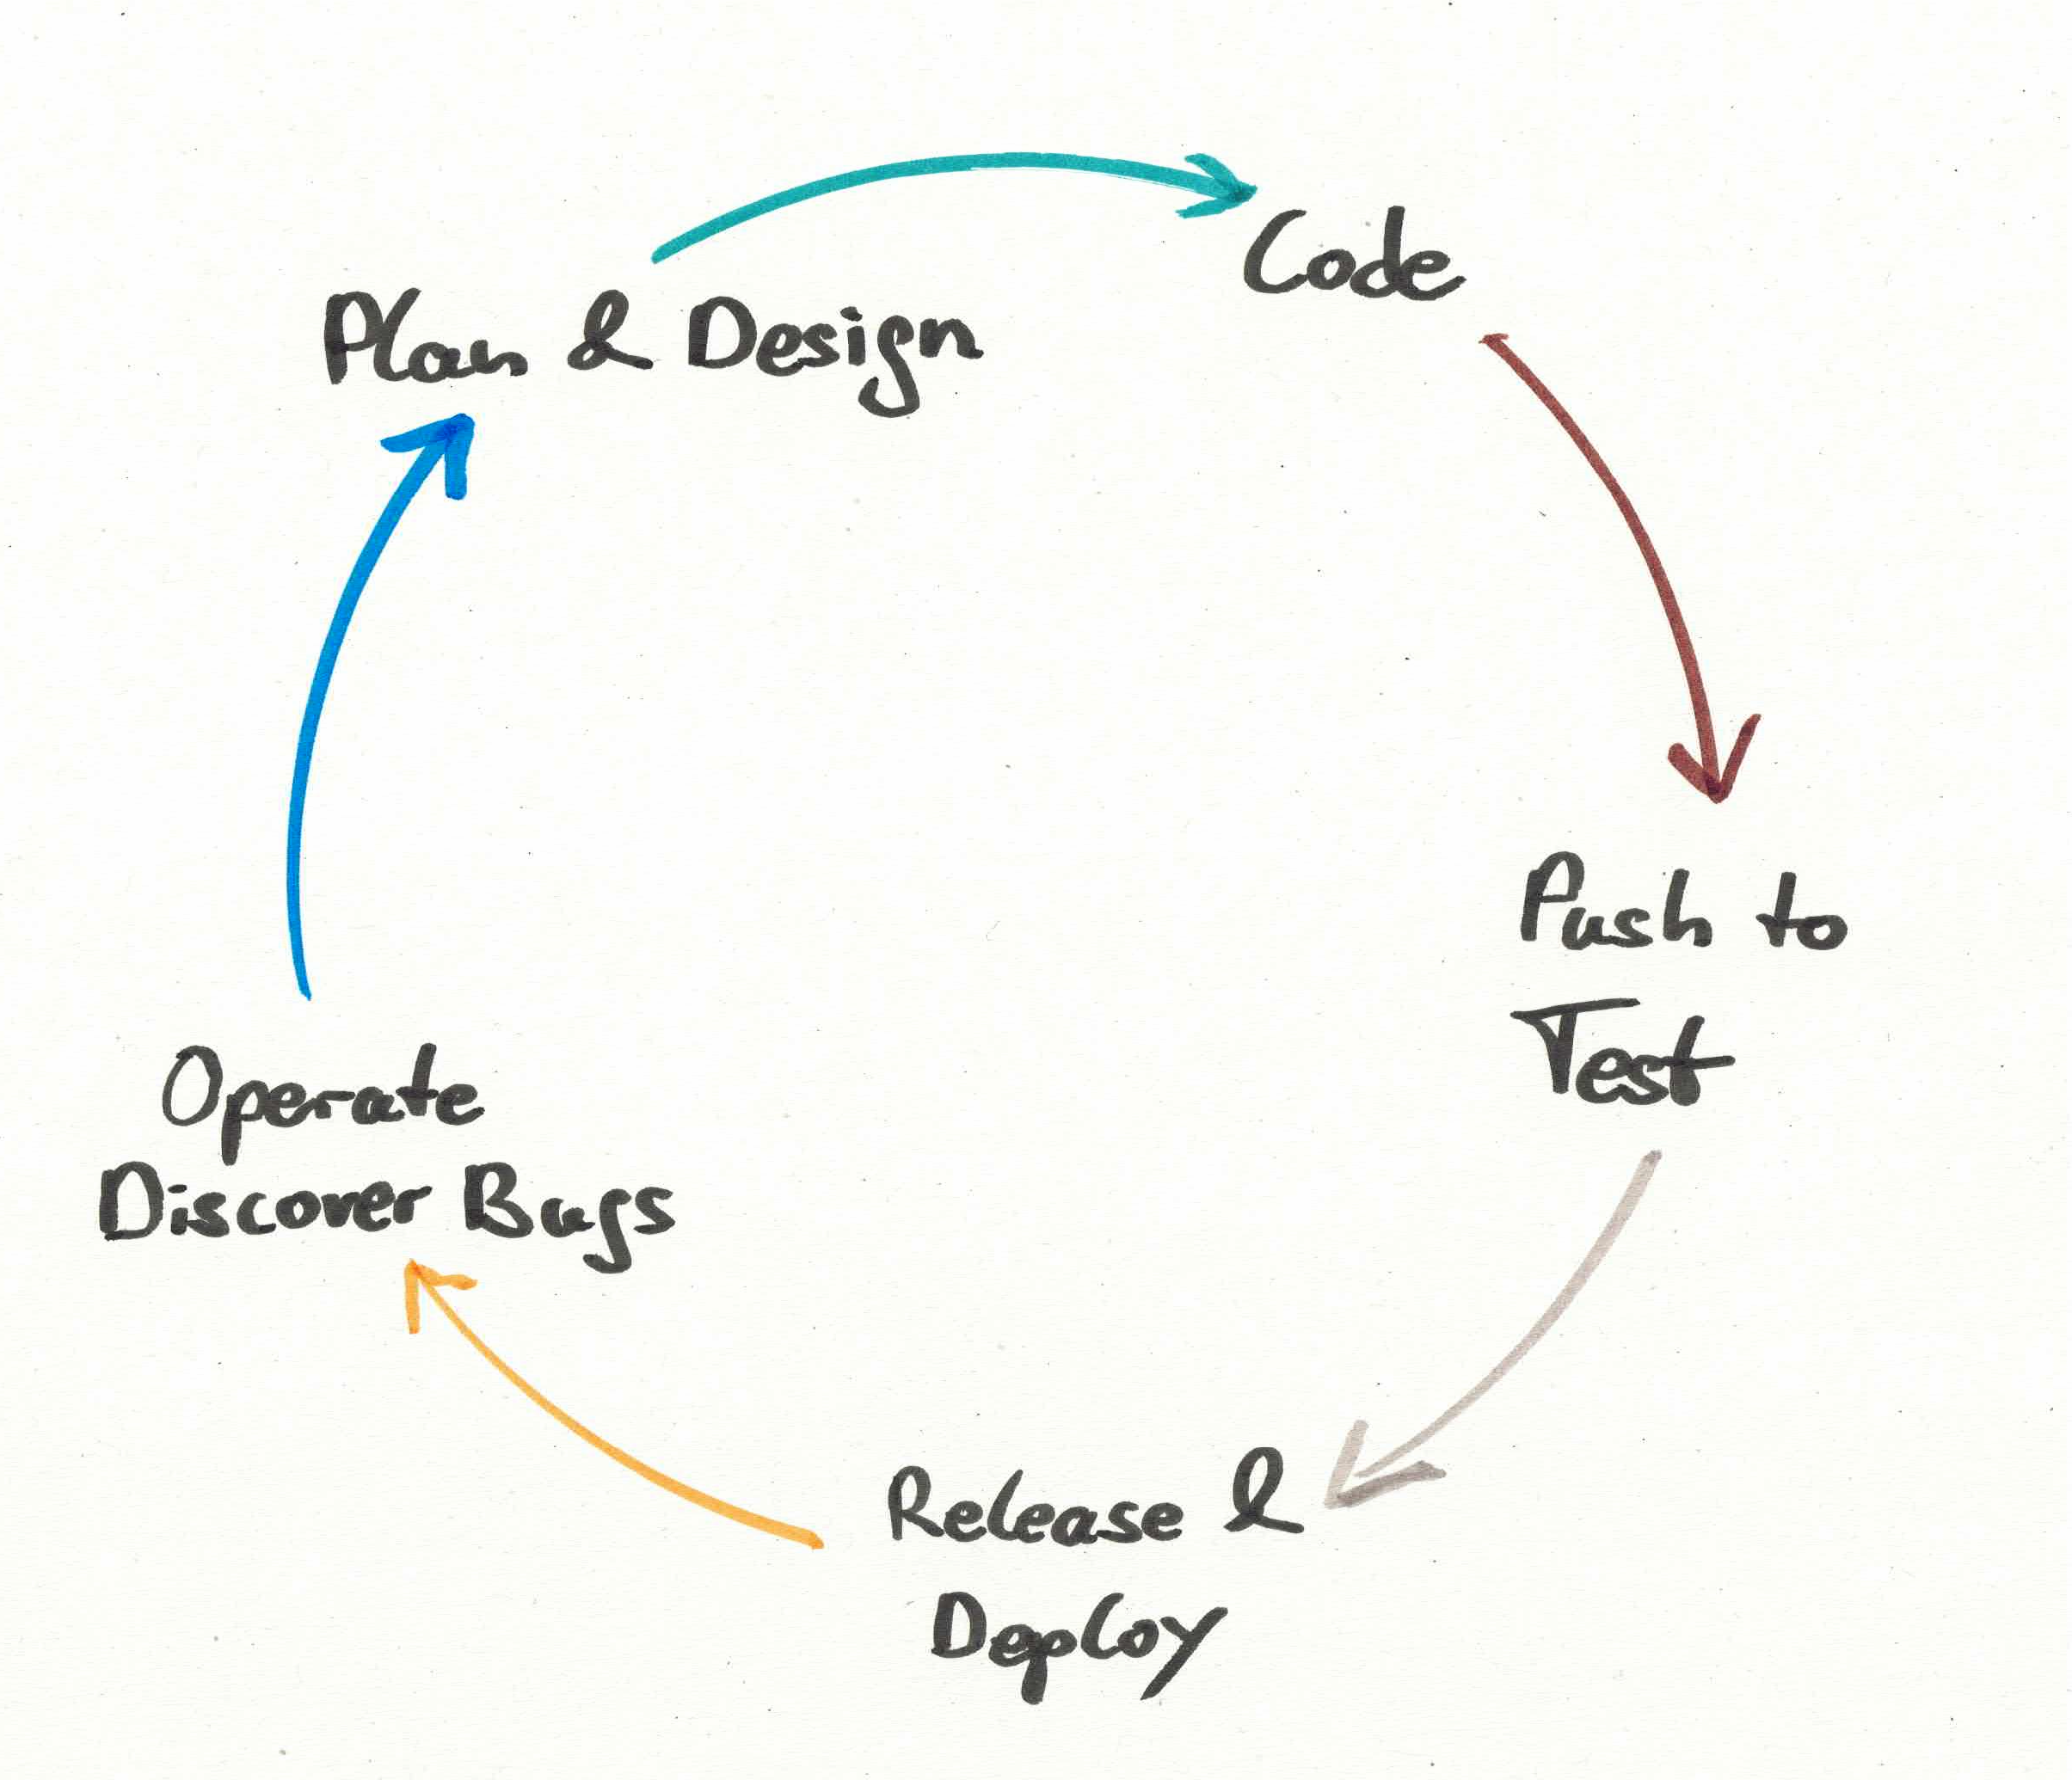 Plan & Design
Code
Push to
Test
Release &
Deploy
Operate
Discover Bugs